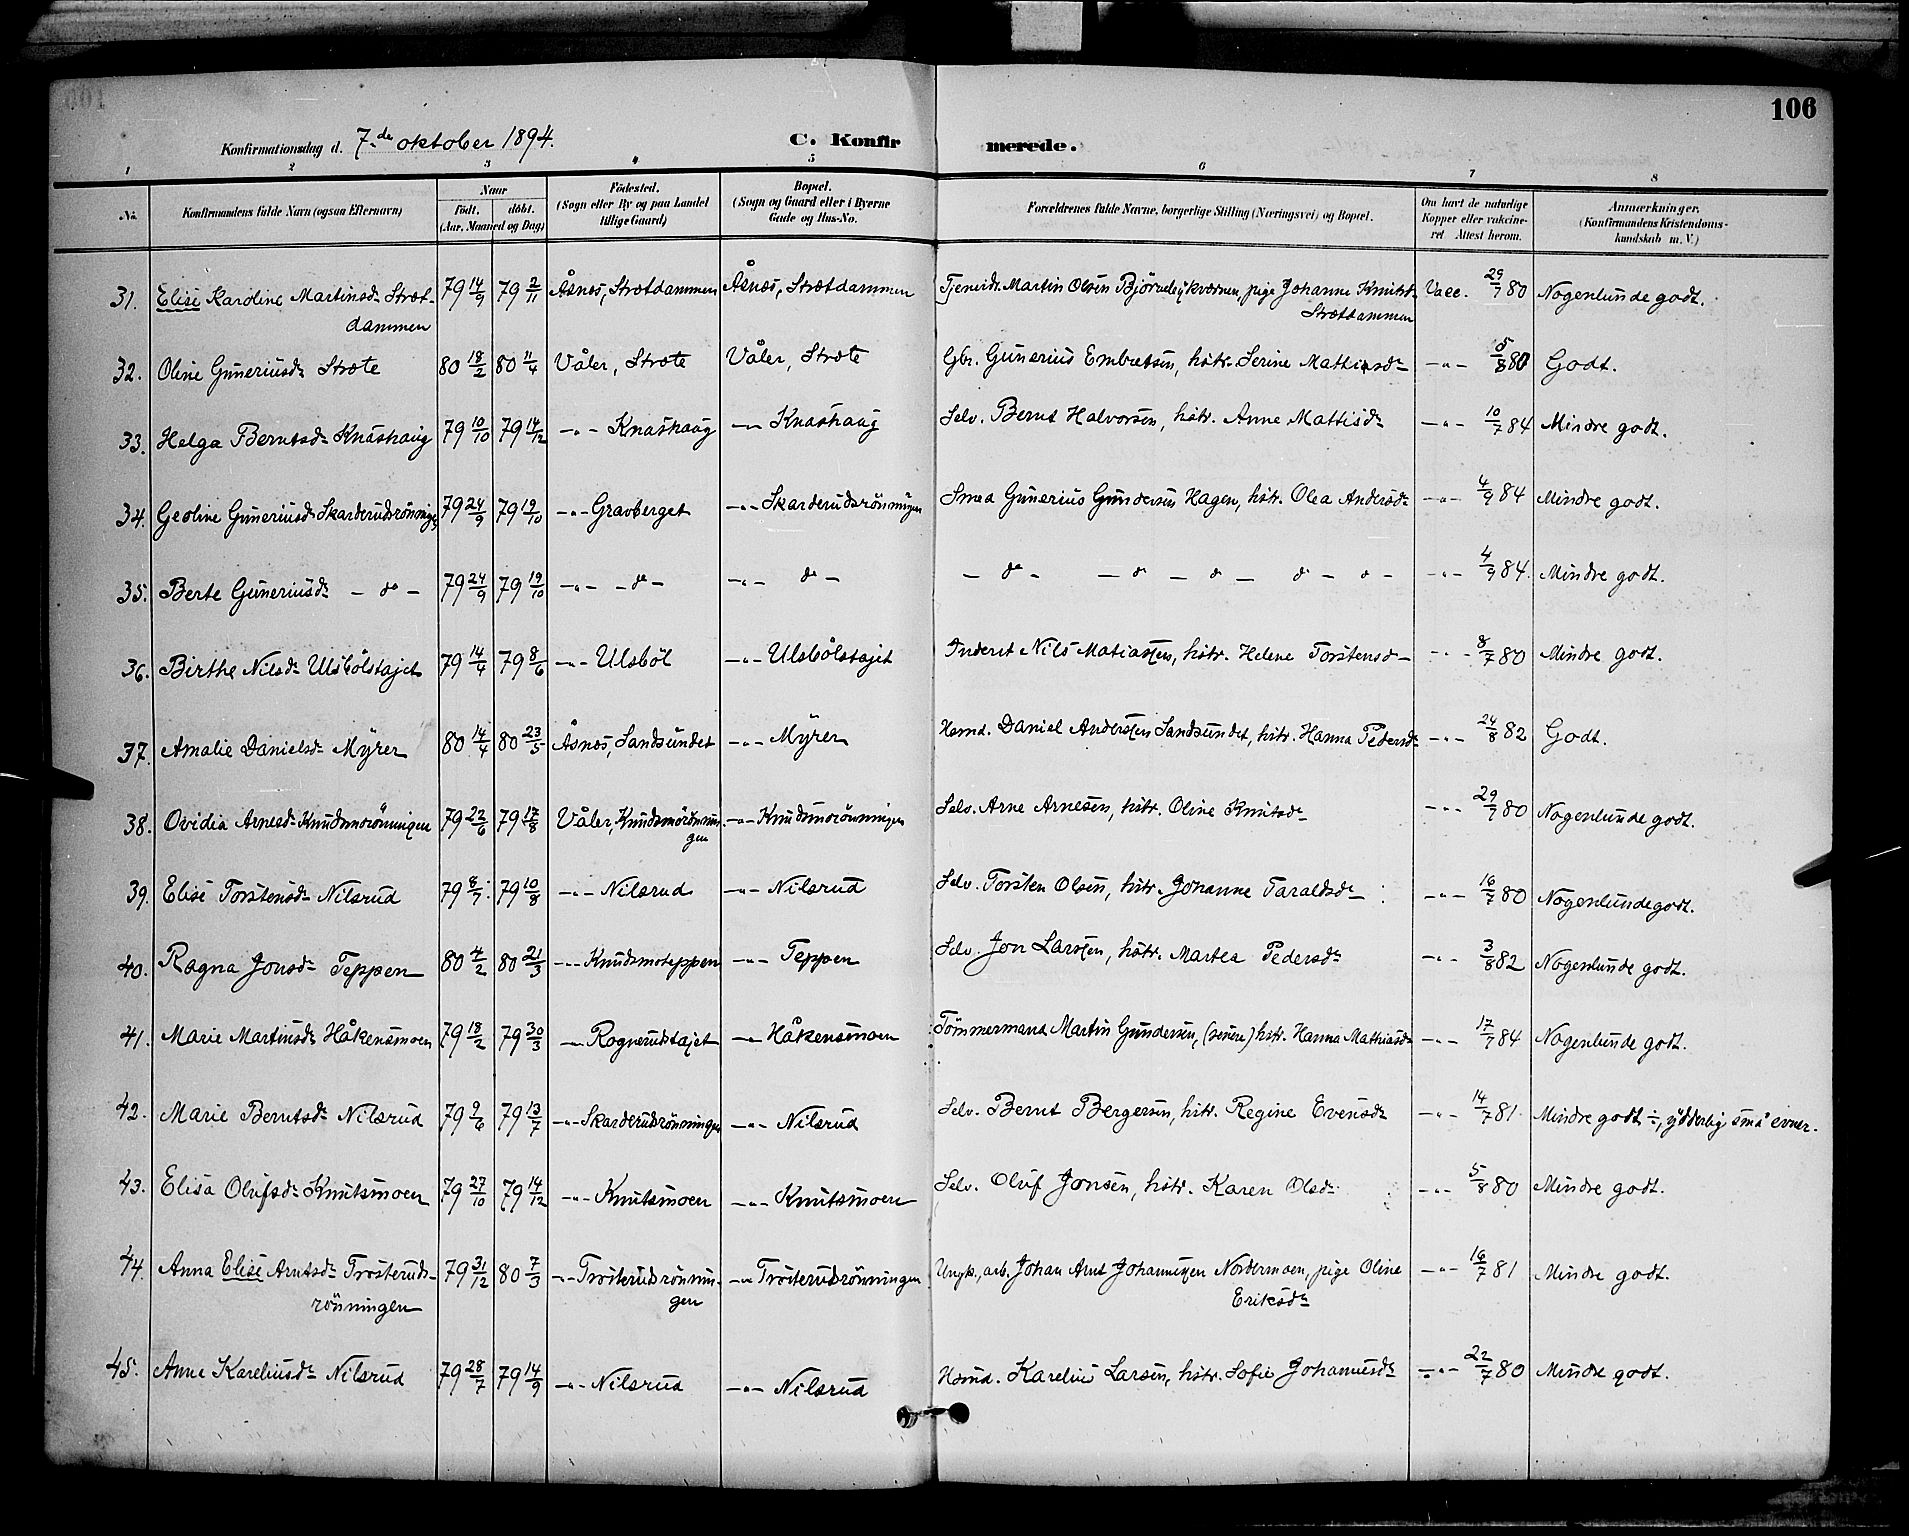 106
Konfirmationsdag d. 7.de oktober 1894.
C. Konfirmerede.
1 2 3 4 5 6 7 8
No. Konfirmandens fulde Navn (ogsaa Efternavn) Naar født. døbt. (Aar, Maaned og Dag) Födested. (Sogn eller By og paa Landet tillige Gaard) Bopæl. (Sogn og Gaard eller i Byerne Gade og Hus-No. Forældrenes fulde Navne, borgerlige Stilling (Næringsvei) og Bopæl. Om havt de naturlige Kopper eller vakcineret Attest herom. Anmærkninger. (Konfirmandens Kristendomskundskab m. V.)
31. Elise Karoline Martinsd. Strætdammen 79 14/9 79 2/11 Åsnes, Strætdammen Åsnes, Strætdammen Martin Olsen pige Johanne Knutsd. Strætdammen Vacc. 29/7 80 Nogenlunde godt.
32. Oline Guneriusd. Stræte 80 18/2 80 11/4 Våler, Stræte Våler, Stræte Gbr. Gunerius Embretsen, hstr. Serine Mathiasd. -"- 5/8 80 Godt.
33. Helga Berntsd. Knashaug 79 10/10 79 14/12 -"- Knashaug -"- Knashaug Selv. Bernt Halvorsen, hstr. Anne Mattisd. -"- 10/7 84 Mindre godt.
34. Geoline Guneriusd. Skarderudsrönningen 79 24/9 79 19/10 -"- Gravberget -"- Skarderudsrönningen Smed Gunerius Gundersen Hagen, hstr. Olea Andersd. -"- 4/9 84 Mindre godt.
35. Berte Guneriusd. - do - 79 24/9 79 19/10 -"- - do - -"- do - - do - - do - do - do - do - -"- 4/9 84 Mindre godt.
36. Birthe Nilsd. Ulsbölstajet 79 14/4 79 8/6 -"- Ulsböl -"- Ulsbölstajet Inderst Nils Matiassen, hstr. Helene Torstensd. -"- 8/7 80 Mindre godt.
37. Amalie Danielsd. Myrer 80 14/4 80 23/5 Åsnes, Sandsundet -"- Myrer Hsmd. Daniel Anderssen Sandsundet, hstr. Hanna Pedersd. -"- 24/8 82 Godt.
38. Ovidia Arnesd. Knudsmorönningen 79 22/6 79 17/8 Våler, Knudsmorönningen -"- Knudsmorönningen Selv. Arne Arnesen, hstr. Oline Knutsd. -"- 29/7 80 Nogenlunde godt.
39. Elise Torstensd. Nilsrud 79 8/7 79 10/8 -"- Nilsrud -"- Nilsrud Selv. Torsten Olsen, hstr. Johanne Taraldsd. -"- 16/7 80 Nogenlunde godt.
40. Ragna Jonsd. Teppen 80 4/2 80 21/3 -"- Knudsmoteppen -"- Teppen Selv. Jon Larssen, hstr. Martea Pedersd. -"- 3/8 82 Nogenlunde godt.
41. Marie Martinsd. Håkensmoen 79 18/2 79 30/3 -"- Rognerudstajet -"- Håkensmoen Tömmermand Martin Gundersen, hstr. Hanna Mathiasd. -"- 17/7 84 Nogenlunde godt.
42. Marie Berntsd. Nilsrud 79 9/6 79 13/7 -"- Skarderudsrönningen -"- Nilsrud Selv. Bernt Bergersen, hstr. Regine Evensd. -"- 14/7 81 Mindre godt ÷, ydderlig små evner.
43. Elisa Olufsd. Knutsmoen 79 27/10 79 14/12 -"- Knutsmoen -"- Knutsmoen Selv. Oluf Jonsen, hstr. Karen Olsd. -"- 5/8 80 Mindre godt.
44. Anna Elise Arntsd. Trösterudsrönningen 79 31/12 80 7/3 -"- Trösterudsrönningen -"- Trösterudsrönningen Ungk., arb. Johan Arnt Johannessen Nordermoen, pige Oline Eriksd. -"- 16/7 81 Mindre godt.
45. Anne Kareliusd. Nilsrud 79 28/7 79 14/9 -"- Nilsrud -"- Nilsrud Hsmd. Karelius Larsen, hstr. Sofie Johannesd. -"- 22/7 80 Mindre godt.